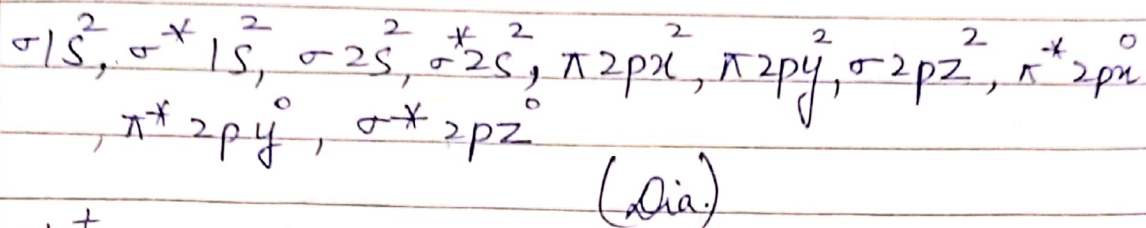 σ1s², σ*1s², σ2s², σ*2s², π2px², π2py², σ2pz², π*2px⁰
, π*2py⁰, σ*2pz⁰
(Dia.)
+